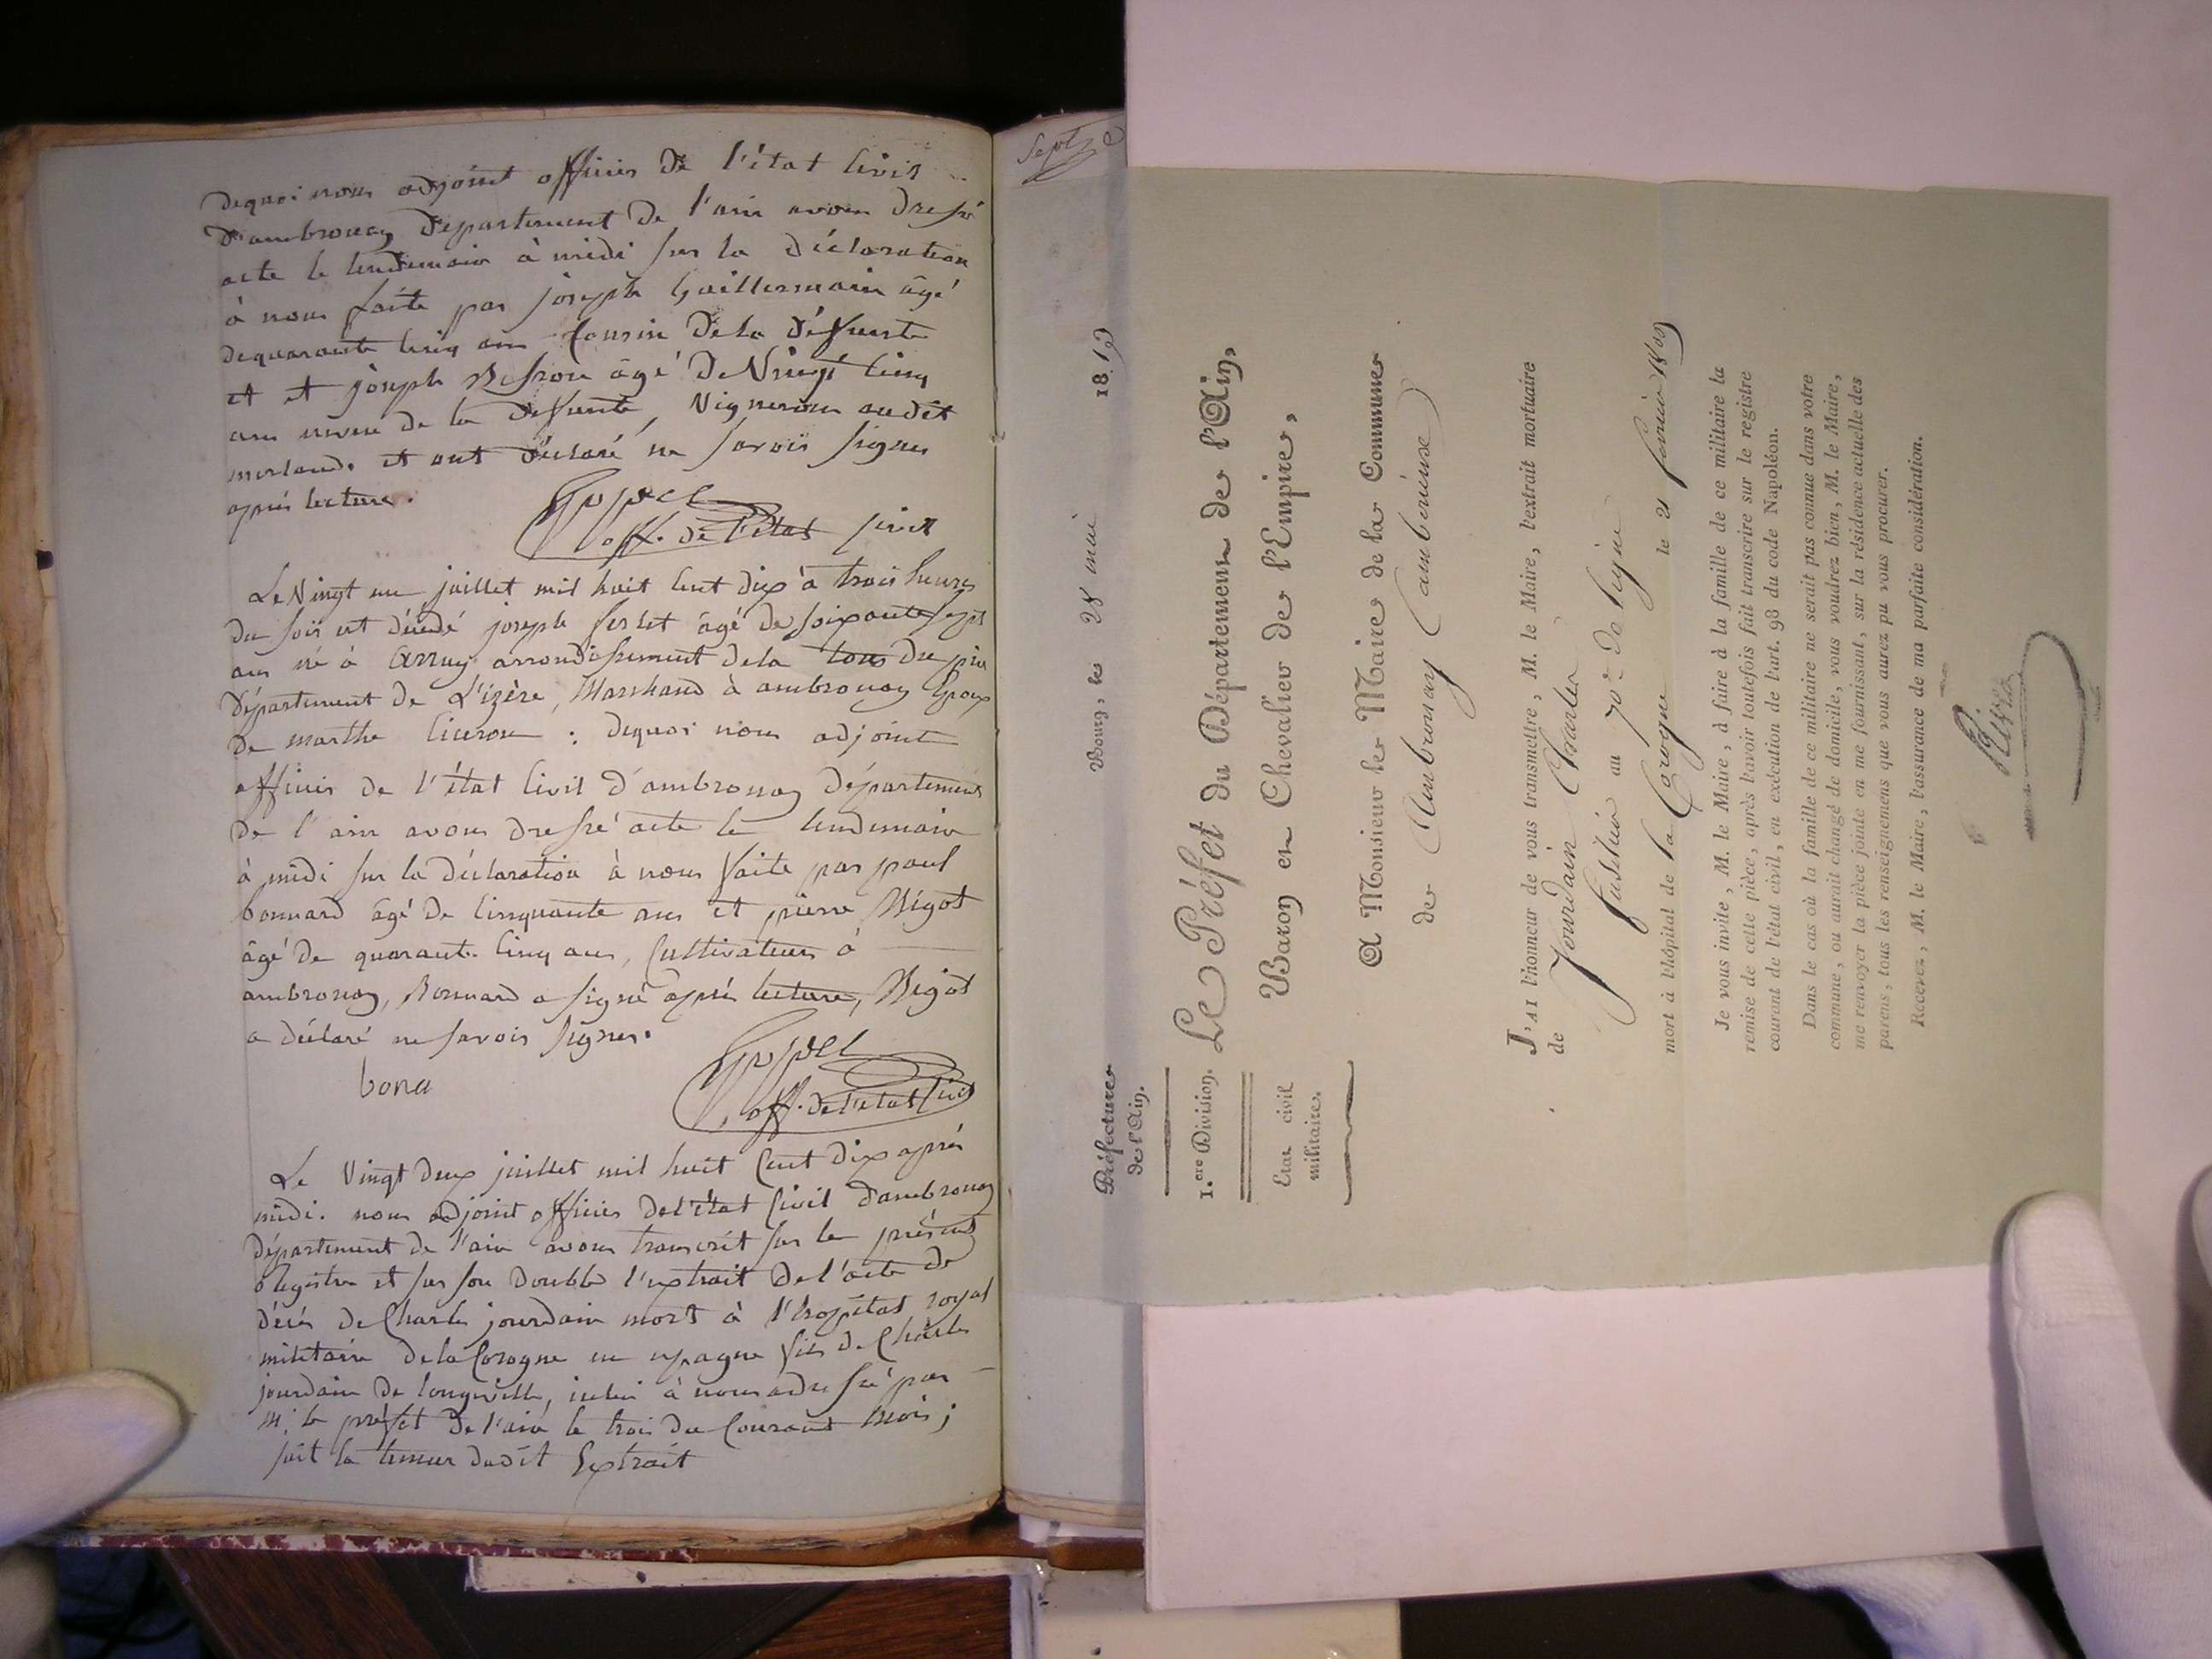 dequoi nous adjoint officier de l'état civil
d'ambronay département de l'ain avons dressé
acte le lendemain à midi sur la déclaration
à nous faite par joseph Guillermain âgé
dequarante cinq ans Cousin dela défunte
et et joseph Besson âgé de Vingt cinq
ans neveu de la defunte, Vigneron audit
merland. et ont déclaré ne savoir signer
après lecture.
off. de l'état civil
Le Vingt un juillet mil huit Cent dix à trois heures
du soir est décédé joseph âgé de soixante sept
ans né à arrondissement dela tour du pin
département de L'izère, Marchand à ambronay Epoux
de marthe Ciceron : dequoi nous adjoint
officier de l'état Civil d'ambronay département
de l'ain avons dressé acte le lendemain
à midi sur la déclaration à nous faite par paul
bonnard âgé de Cinquante ans et pierre Bigot
âgé de quarante cinq ans, Cultivateurs à
ambronay, Bonnard a signé après lecture, Bigot
a déclaré ne savoir signer.
bona
off. de l'état civil
Le Vingt deux juillet mil huit Cent dix après
midi. nous adjoint officier de l'état Civil d'ambronay
département de l'ain avons transcrit sur le présent
Registre et sur son double l'extrait de l'acte de
décès de Charles jourdain mort à l'hopital royal
militaire dela Corogne en espagne fils de Charles
jourdain de longeville, icelui à nous adressé par
M. le préfet de l'ain le trois du Courant mois ;
suit la teneur dudit Extrait
Sept
Préfecture
de l'Ain.
1.ere Division.
État civil
militaire.
Bourg, le 28 mai 1810
Le Préfet du Département de l'Ain,
Baron et Chevalier de l'Empire,
A Monsieur le Maire de la Commune
de Ambronay (ambérieux)
J'AI l'honneur de vous transmettre, M. le Maire, l'extrait mortuaire
de Jourdain Charles
fusilier au 70e de ligne
mort à l'hôpital de la Corogne le 21 fevrier 1809
Je vous invite, M. le Maire, à faire à la famille de ce militaire la
remise de cette pièce, après l'avoir toutefois fait transcrire sur le registre
courant de l'état civil, en exécution de l'art. 98 du code Napoléon.
Dans le cas où la famille de ce militaire ne serait pas connue dans votre
commune, ou aurait changé de domicile, vous voudrez bien, M. le Maire,
me renvoyer la pièce jointe en me fournissant, sur la résidence actuelle des
parens, tous les renseignemens que vous aurez pu vous procurer.
Recevez, M. le Maire, l'assurance de ma parfaite considération.